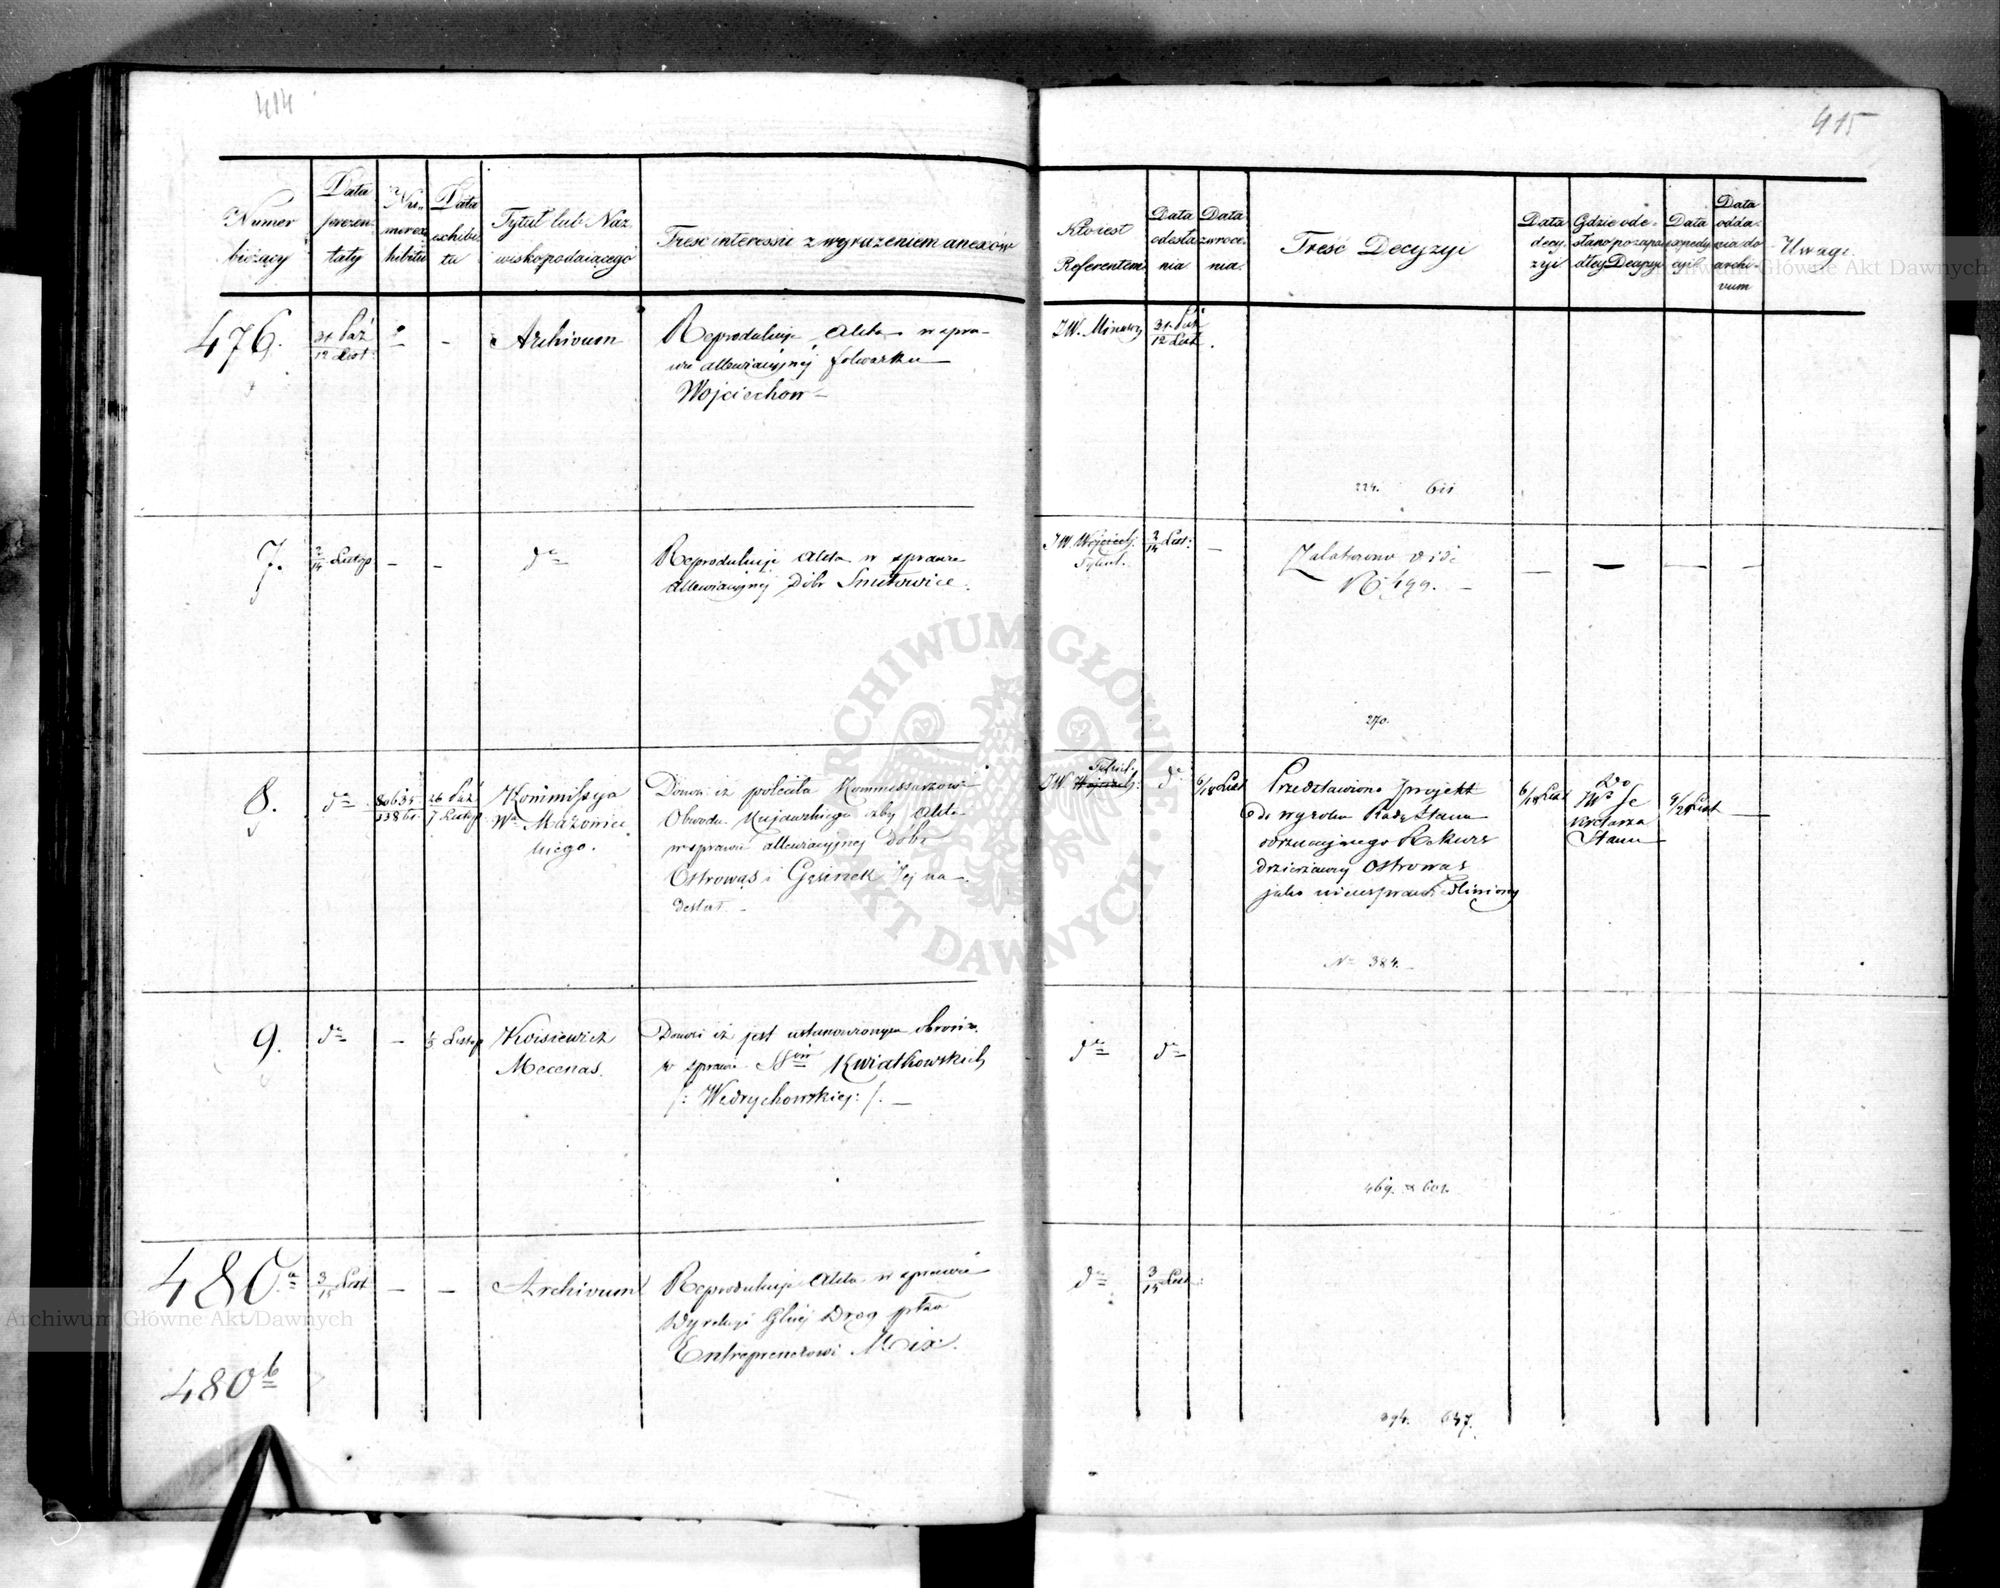 414
Numer
bieżący
Data
prezen-
taty
Nu-
mer ex
hibitu
Data
exhibi-
tu
Tytuł lub Naz
wisko podaiącego
Treść interessu z wyrażeniem anexów
476.
31 Paź
12 List:
-
Archivum
Reprodukuje Akta w spra-
wie allewiacyjnej folwarku
Wojciechow -
7.
2/14 Listop
-
-
d°
Reprodukuje Akta w sprawie
allewiacyjnej Dóbr Smiłowice.
8.
d°
80635
138 61
26 Paź
7 Listop
Kommissya
Wa Mazowiec
kiego.
Donosi iż poleciła Kommissarzowi
Obwodu Kujawskiego ażby Akta
w sprawie allewiacyjnej Dóbr
Ostrowąs i Gęsinek Jej na-
desłał. -
9.
d°
-
Listop
Koisiewicz
Mecenas.
Donosi iż jest ustanowionym obrońc.
w sprawie SSów Kwiatkowskich
/: Wędrychowskiej: /. -
480.a
3/15 List
-
-
Archivum
Reprodukuje Akta w sprawie
Dyrekcyi Głnéj Dróg ptko
Entreprenerowi Mix.
480 b
415
Kto iest
Referentem
Data
odesła
nia
Data
zwroce-
nia.
Treść Decyzyi
Data
decy-
zyi
Gdzie ode-
słano po zapa-
dłey Decyzyi
Data
expedy
cyi
Data
odda-
nia do
archi-
vum
Uwagi.
JW. Minawy
31. Paź
12 List
224. 611
JW. Wojciech:
2/14 List:
-
Załatwiono vide
N° 499. -
270.
JW.
d°
6/18 List
Przedstawiono projekt
do wyroku Rady Stanu
odrzucającego Rekurs
dzierżawcy Ostrowąs
jako nieusprawiedliwiony
6/18 List
JWo Se
kretarza
Stanu
9/21 List
-
N° 384.
d°
d°
469. 601.
d°
3/15 List:
394. 637.
Archiwum Główne Akt Dawnych
Archiwum Główne Akt Dawnych
ARCHIWUM GŁÓWNE AKT DAWNYCH